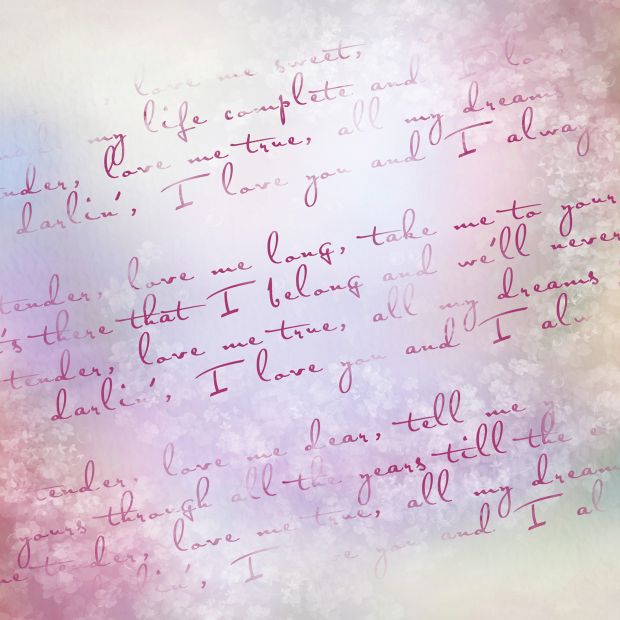 love me sweet,
my life complete and I lo
nder, love me true, all my dreams
darlin', I love you and I alway
tender, love me long, take me to your
's there that I belong and we'll never
tender, love me true, all my dreams
darlin', I love you and I alw
tender, love me dear, tell me y
yours through all the years till the e
me tender, love me true, all my dream
lin', I e you and I al